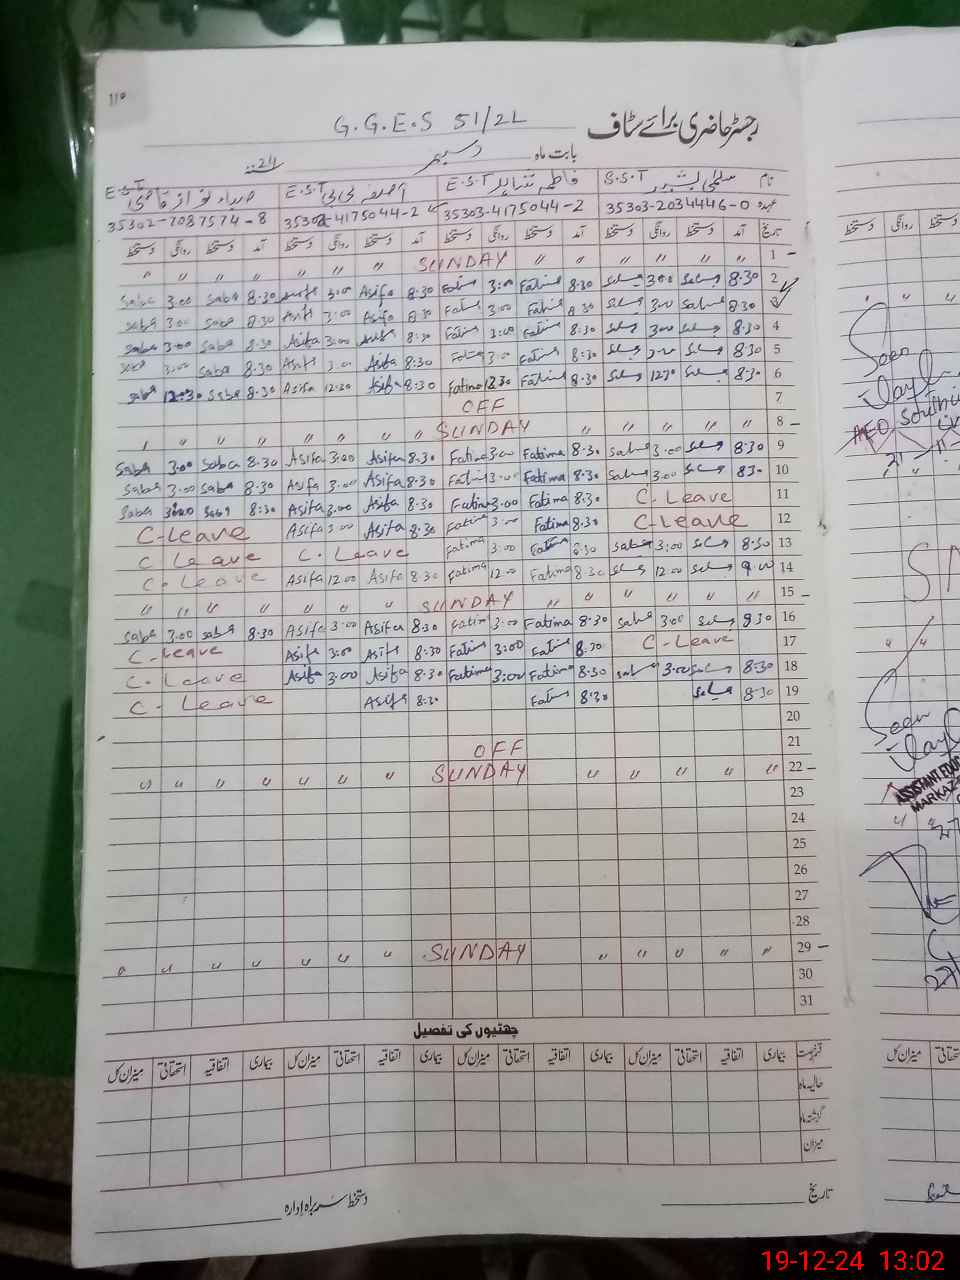 110
رجسٹر حاضری برائے سٹاف
G.G.E.S 51/2L
بابت ماہ دسمبر 24
نام سلمیٰ بشیر S.S.T فاطمہ E.S.T آصفہ بی بی E.S.T E.S.T
عہدہ 35303-2034446-0 35303-4175044-2 35302-4175044-2 35302-7087574-8
تاریخ آمد دستخط روانگی دستخط آمد دستخط روانگی دستخط آمد دستخط روانگی دستخط آمد دستخط روانگی دستخط
1 " " " " " " SUNDAY " " " " " "
2 8:30 3:00 8:30 Fatima 3:00 Fatima 8:30 Asifa 3:00 Asifa 8:30 Saba 3:00 Saba
3 8:30 3:00 8:30 Fatima 3:00 Fatima 8:30 Asifa 3:00 Asifa 8:30 Saba 3:00 Saba
4 8:30 3:00 8:30 Fatima 3:00 Fatima 8:30 Asifa 3:00 Asifa 8:30 Saba 3:00 Saba
5 8:30 3:00 8:30 Fatima 3:00 Fatima 8:30 Asifa 3:00 Asifa 8:30 Saba 3:00 Saba
6 8:30 1230 8:30 Fatima 12:30 Fatima 8:30 Asifa 12:30 Asifa 8:30 Saba 12:30 Saba
7 OFF
8 " " " " " " SUNDAY " " " " " "
9 8:30 3:00 8:30 Fatima 3:00 Fatima 8:30 Asifa 3:00 Asifa 8:30 Saba 3:00 Saba
10 830 3:00 8:30 Fatima 3:00 Fatima 8:30 Asifa 3:00 Asifa 8:30 Saba 3:00 Saba
11 C-Leave 8:30 Fatima 3:00 Fatima 8:30 Asifa 3:00 Asifa 8:30 Saba 3:00 Saba
12 C-Leave 8:30 Fatima 3:00 Fatima 8:30 Asifa 3:00 Asifa C-Leave
13 8:30 3:00 8:30 Fatima 3:00 Fatima C. Leave C Leave
14 9:00 12:00 8:30 Fatima 12:00 Fatima 8:30 Asifa 12:00 Asifa C-Leave
15 " " " " " " SUNDAY " " " " " "
16 8:30 3:00 8:30 Fatima 3:00 Fatima 8:30 Asifa 3:00 Asifa 8:30 Saba 3:00 Saba
17 C-Leave 8:30 Fatima 3:00 Fatima 8:30 Asifa 3:00 Asifa C-Leave
18 8:30 3:00 8:30 Fatima 3:00 Fatima 8:30 Asifa 3:00 Asifa C-Leave
19 8:30 8:30 Fatima 8:30 Asifa C-Leave
20
21 OFF
22 " " " " " SUNDAY " " " " " "
23
24
25
26
27
28
29 " " " " " SUNDAY " " " " " "
30
31
چھٹیوں کی تفصیل
بیماری اتفاقیہ استحقاقی میزان کل بیماری اتفاقیہ استحقاقی میزان کل بیماری اتفاقیہ استحقاقی میزان کل بیماری اتفاقیہ استحقاقی میزان کل
حالیہ ماہ
گزشتہ ماہ
میزان
تاریخ
دستخط سربراہ ادارہ
دستخط روانگی دستخط
Seen
AEO
Seen
ASSISTANT EDU
MARKAZ
19-12-24 13:02